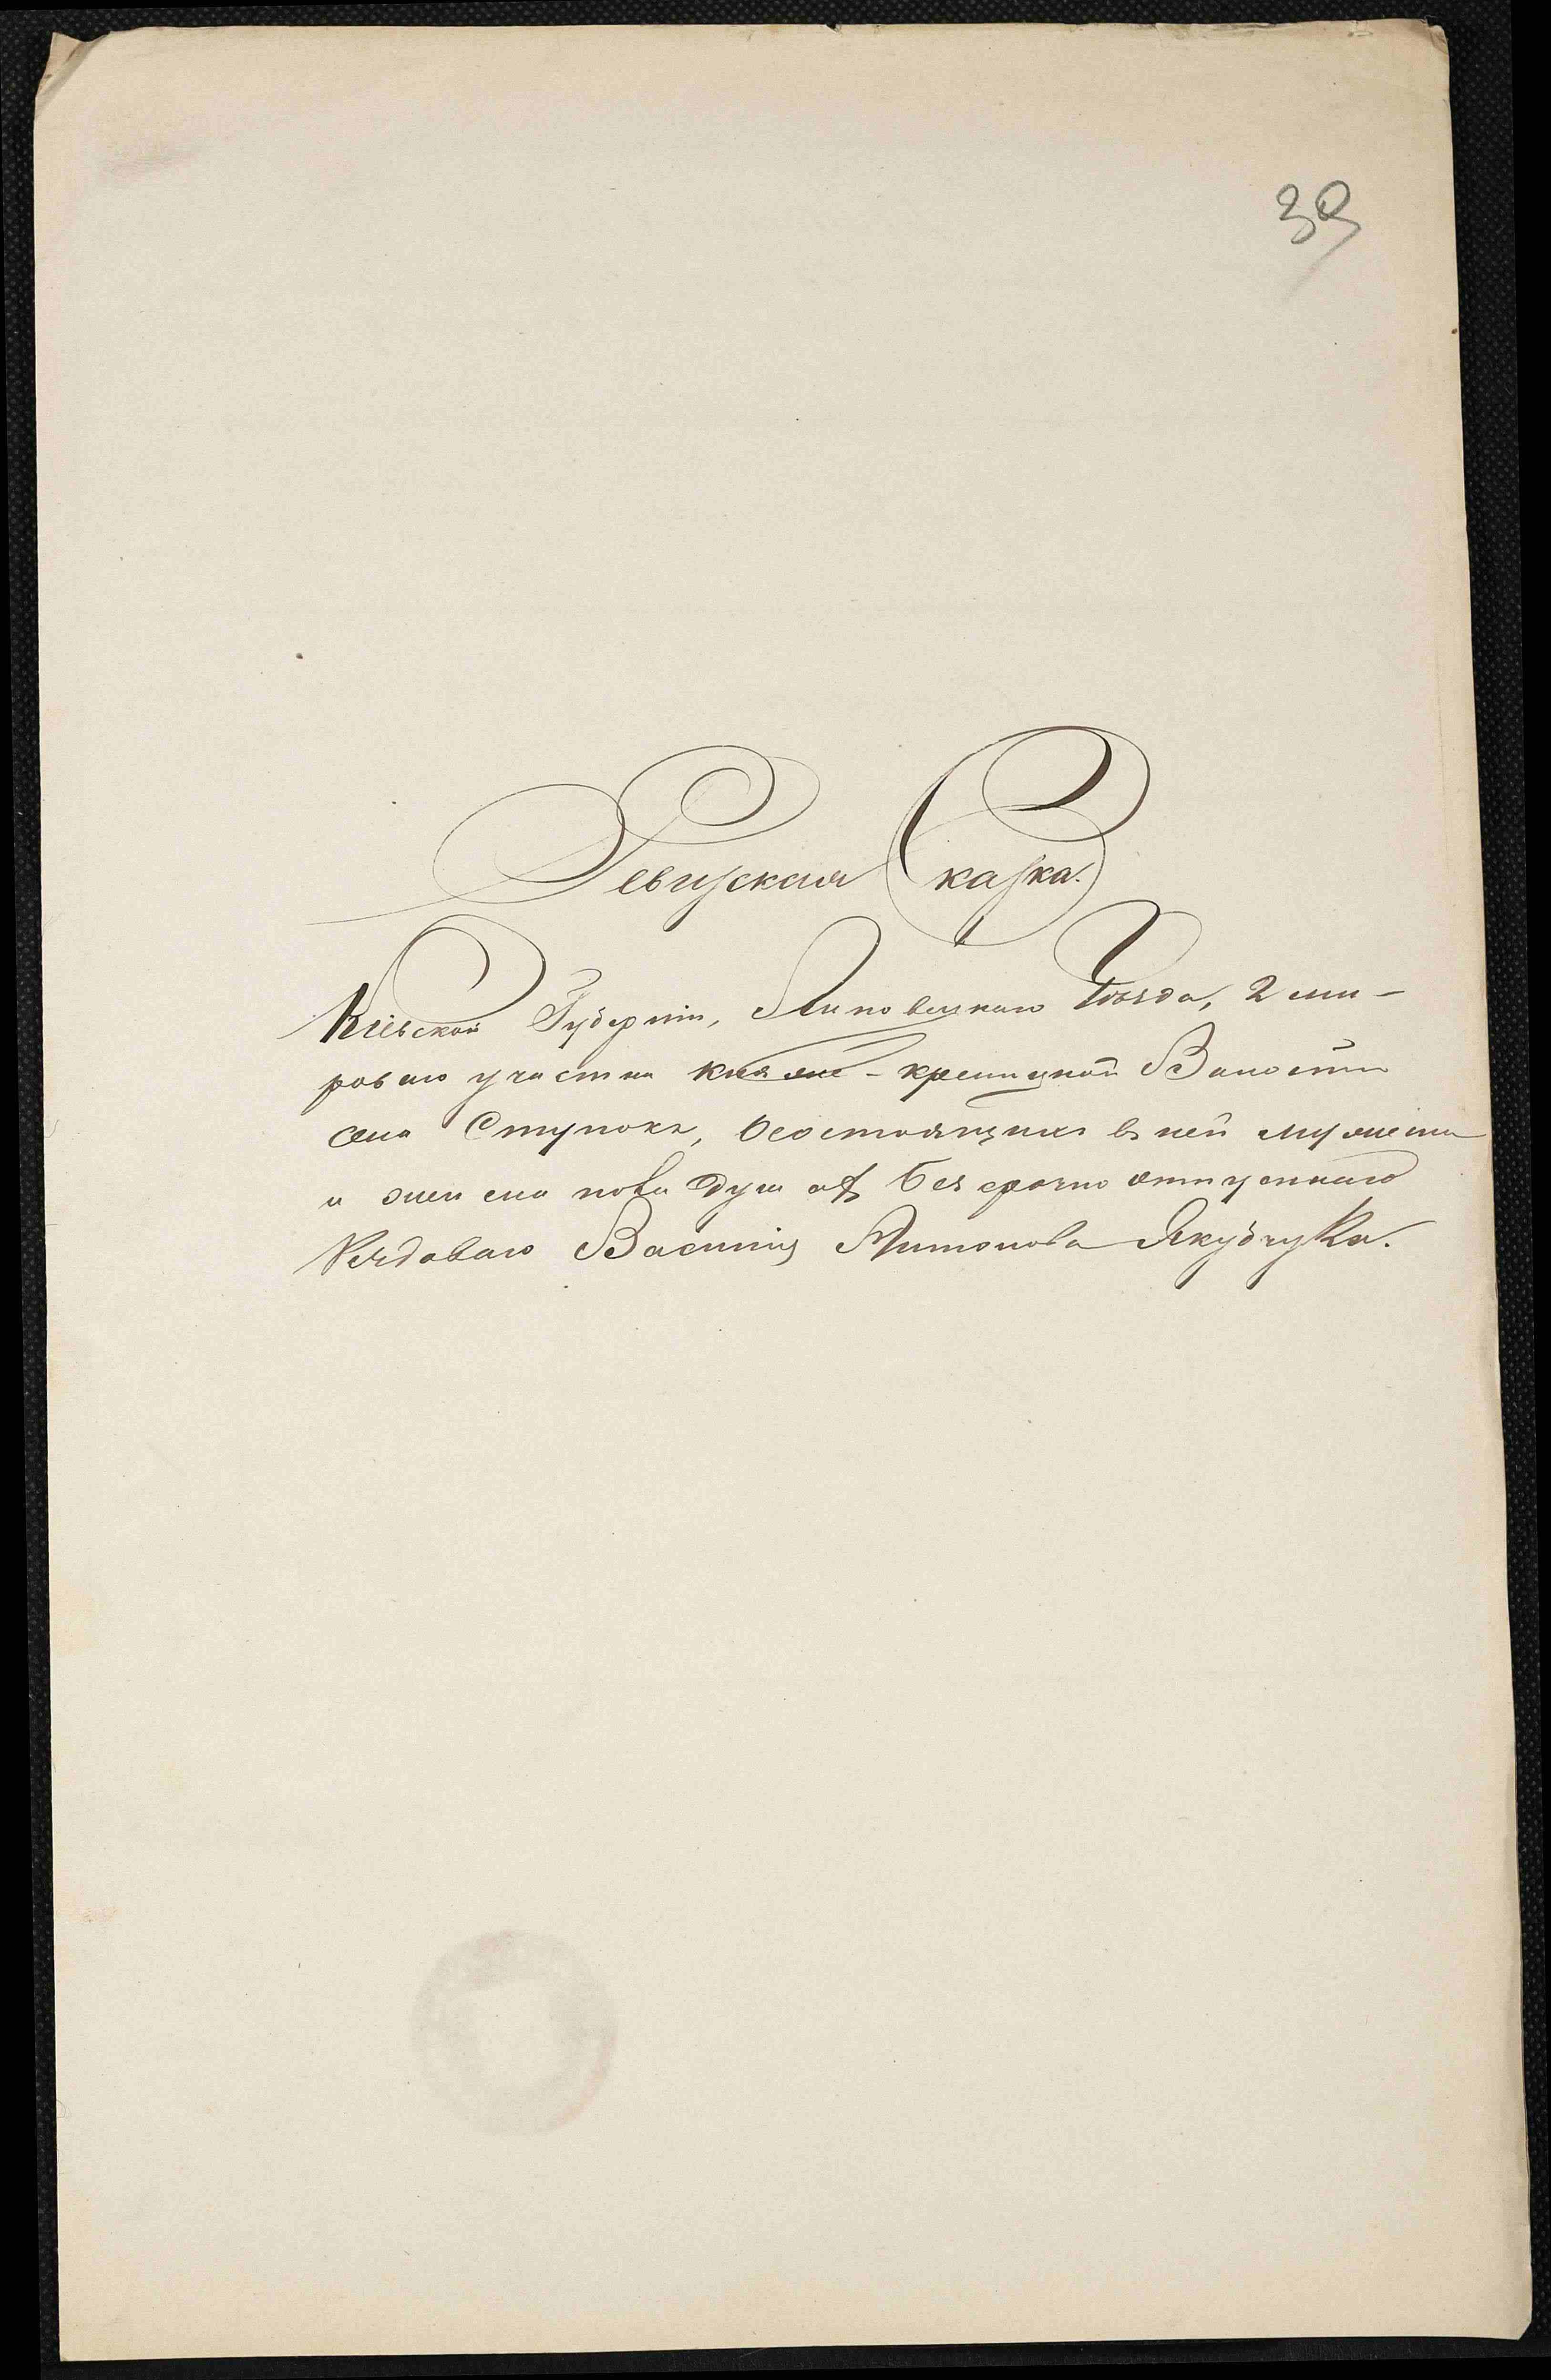 39
Ревизская Сказка.
Кіевской Губерніи, Липовецкаго Уѣзда, 2 ми-
роваго участка Княже-криницкой Волости
села Ступокъ, о состоящихъ въ ней мужеска
и женска пола душахъ безсрочно отпускнаго
Рядоваго Василія Антонова Якубчука.